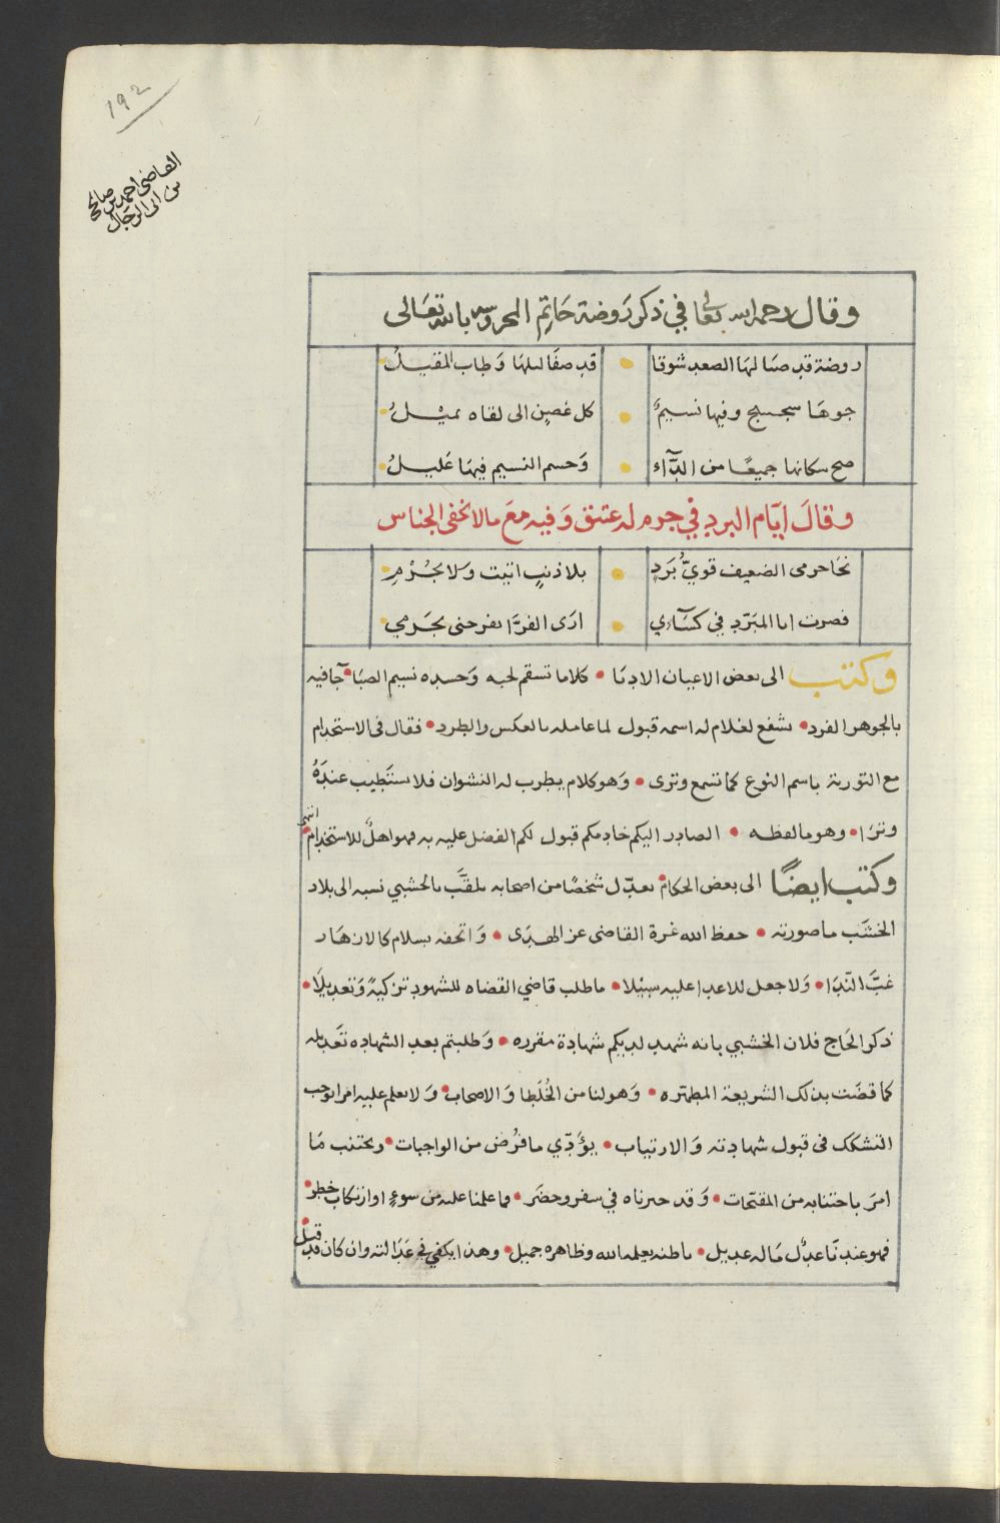 192
القاضي احمد بن صالح
بن ابى الرجال
وقال رحمه الله تعالى في ذكر روضة حاتم المحروسه بالله تعالى
روضة قد صبا لها الصعد شوقا • قد صفا ليلها وطاب المقيل
جوها سجسج وفيها نسيم • كل غصن الى لقاه يميل
صح سكانها جميعا من الدآء • وجسم النسيم فيها عليل
وقال ايّام البرد في جرم له عتيق وفيه مع ما لا يخفى الجناس
نحا جرمى الضعيف قويّ برد • بلا ذنب اتيت ولا بجرم
فصرت انا المبرّد في كسآءي • ارى الفرّا يفرحنى بجرمي
وكتب الى بعض الاعيان الادبا • كلاما تسقم لحبه وحسده نسيم الصبا • جآ فيه
بالجوهر الفرد • يشفع لغلام له اسمه قبول لما عامله بالعكس والطرد • فقال فى الاستخدام
مع التورية باسم النوع كما تسمع وترى • وهو كلام يطرب له النشوان فلا يستطيب عنده
وترا • وهو ما لفظه • الصادر اليكم خادمكم قبول لكم الفضل عليه به فهو اهل للاستخدام • انتهى
وكتب ايضا الى بعض الحكام • يعدّل شخصا من اصحابه يلقّب بالخشبي نسبه الى بلاد
الخشب ما صورته • حفظ الله غرة القاضى عز الهدى • واتحفه بسلام كالازهار
غبّ النّدا • ولا جعل للاعدا عليه سبيلا • ما طلب قاضي القضاه للشهود تزكية وتعديلا •
ذكر الحاج فلان الخشبي بانه شهد لديكم شهادة مقرره • وطلبتم بعد الشهاده تعديله
كما قضت بذلك الشريعة المطهره • وهو لنا من الخلطا والاصحاب • ولا نعلم عليه امرا يوجب
التشكك فى قبول شهادته والارتياب • يؤدّي ما فرض من الواجبات • ويجتنب ما
امر باجتنابه من المقبحات • وقد خبرناه في سفر وحضر • فما علمنا عليه من سوء او ارتكاب خطر •
فهو عندنا عدل ما له عديل • باطنه يعلمه الله وظاهره جميل • وهذا يكفي في عدالته وان كان قد قيل •